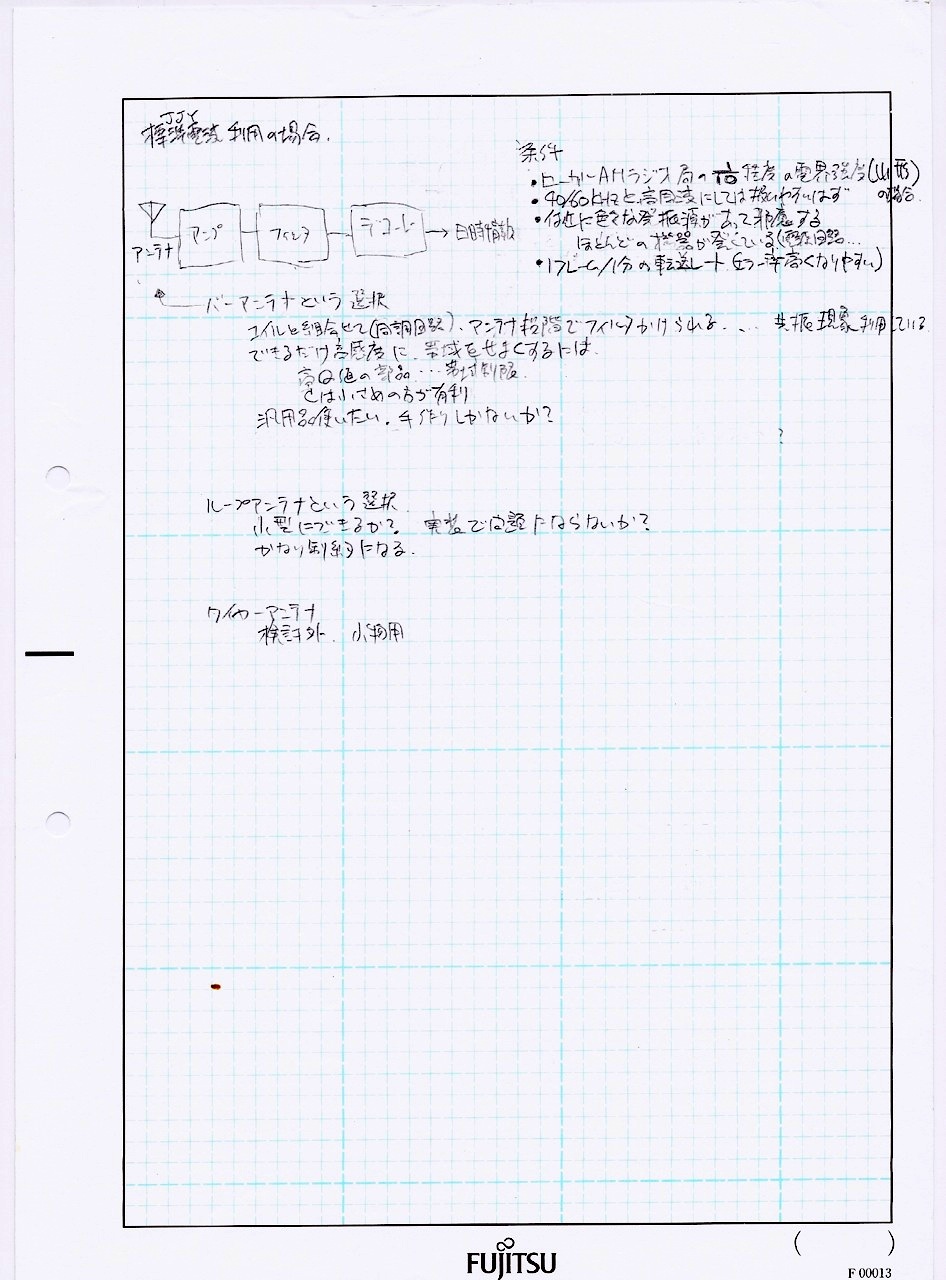 JJY
標準電波利用の場合.
アンテナ
アンプ
フィルタ
デコーダー
日時情報
条件
・ローカルAMラジオ局の 程度の電界強度(山形)
の場合.
・40/60kHzと、高周波にしては扱いやすいはず
・付近に色々な発振源があって邪魔する
ほとんどの機器が発している(電源回路...
・1フレーム/1分の転送レート(エラー率高くなりやすい)
バーアンテナという選択
コイルと組合せて(同調回路)、アンテナ段階でフィルタかけられる... 共振現象利用している
できるだけ高感度に、帯域をせまくするには.
高Q値の部品...帯域制限.
Cは小さめの方が有利
汎用品使いたい. 手作りしかないか?
?
ループアンテナという選択.
小型にできるか? 実装で問題にならないか?
かなり制約になる.
ワイヤーアンテナ
検討外.
FUJITSU
( )
F 00013